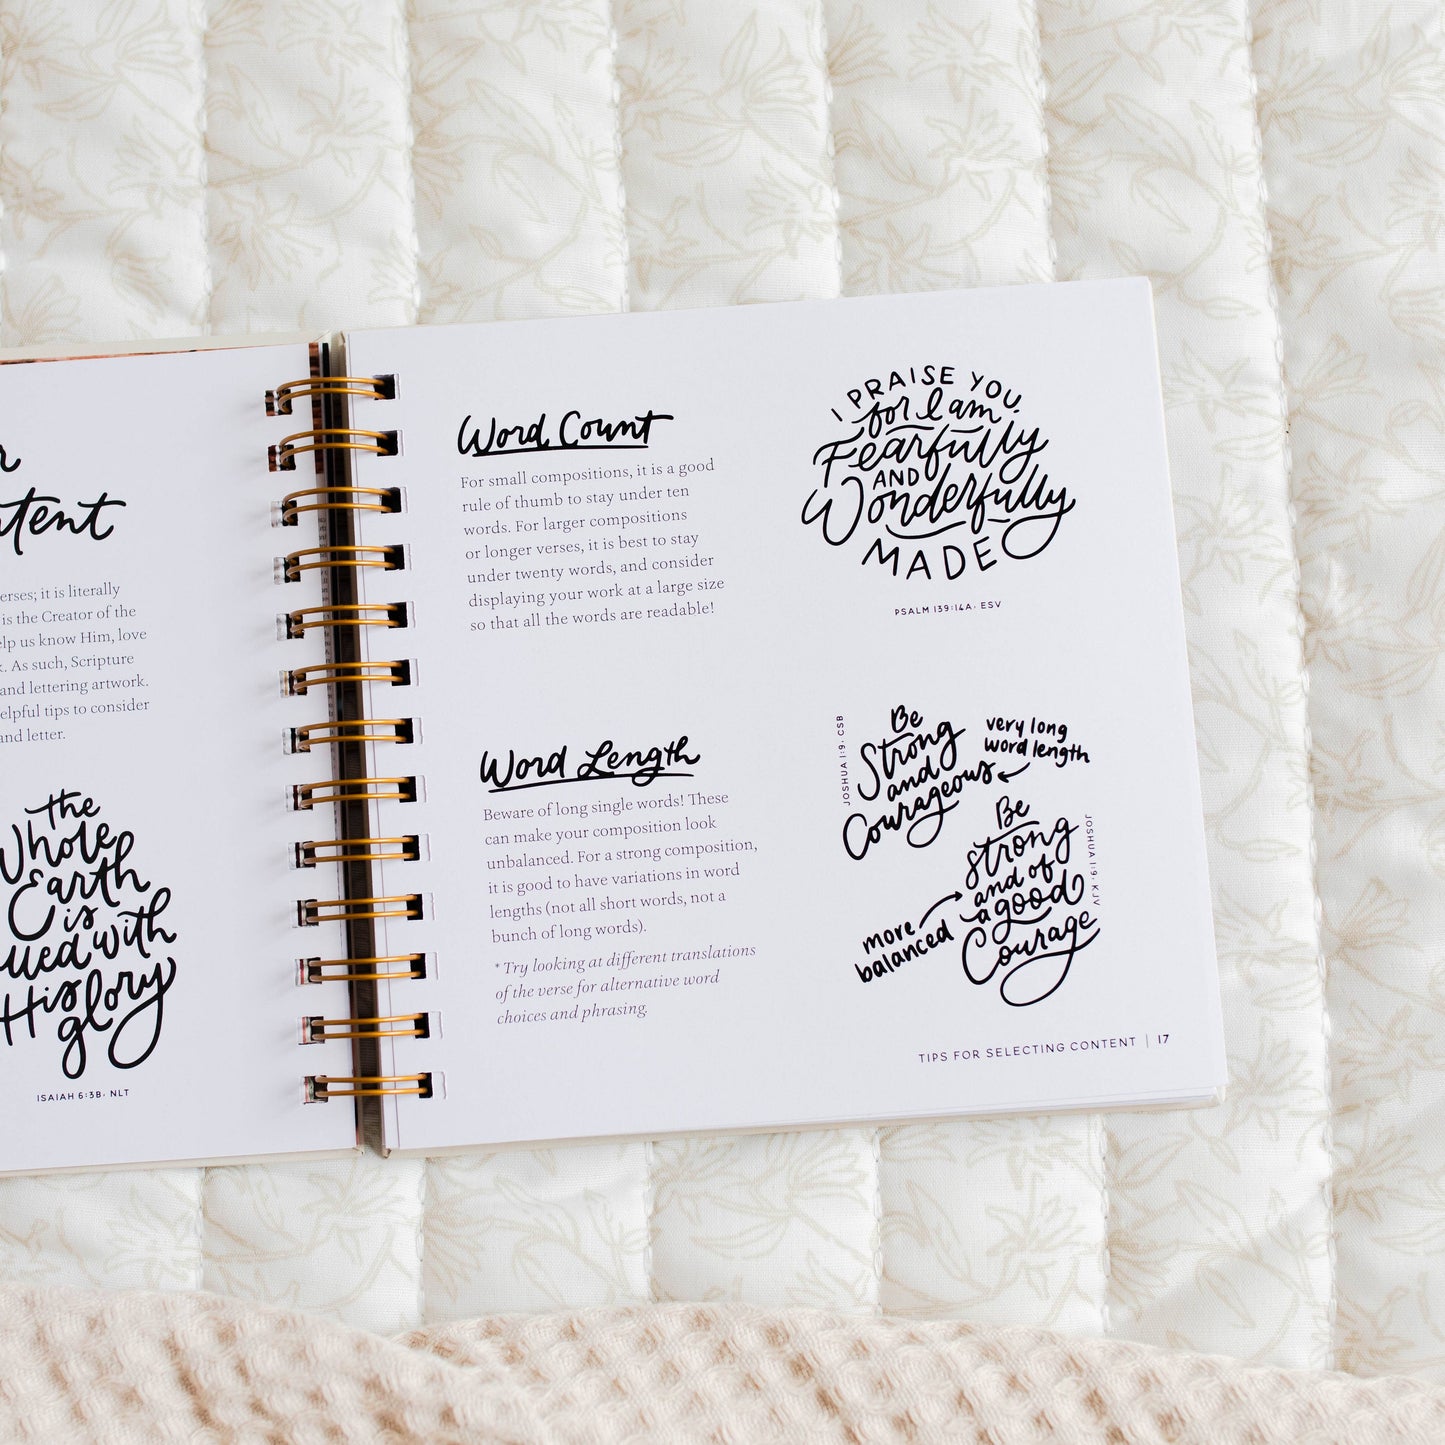 tent
erses; it is literally
is the Creator of the
elp us know Him, love
k. As such, Scripture
and lettering artwork.
elpful tips to consider
and letter.
the
Whole
Earth
is
lled with
His
glory
ISAIAH 6:3B, NLT
Word Count
For small compositions, it is a good
rule of thumb to stay under ten
words. For larger compositions
or longer verses, it is best to stay
under twenty words, and consider
displaying your work at a large size
so that all the words are readable!
I PRAISE YOU,
for I am
Fearfully
AND
Wonderfully
MADE
PSALM 139:14A, ESV
Word Length
Beware of long single words! These
can make your composition look
unbalanced. For a strong composition,
it is good to have variations in word
lengths (not all short words, not a
bunch of long words).
* Try looking at different translations
of the verse for alternative word
choices and phrasing.
JOSHUA 1:9, CSB
Be
Strong
and
Courageous
very long
word length
Be
strong
and of
a good
Courage
JOSHUA 1:9, KJV
more
balanced
TIPS FOR SELECTING CONTENT | 17